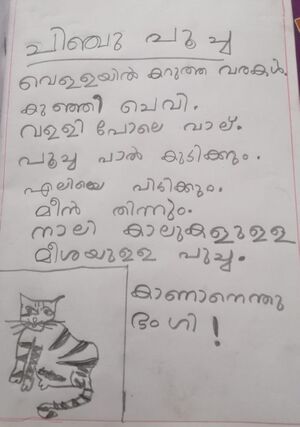 പിഞ്ചു പൂച്ച
വെള്ളയിൽ കറുത്ത വരകൾ.
കുഞ്ഞീ ചെവി.
വള്ളി പോലെ വാല്.
പൂച്ച പാൽ കുടിക്കും.
എലിയെ പിടിക്കും.
മീൻ തിന്നും.
നാലി കാലുകളുള്ള
മീശയുള്ള പൂച്ച.
കാണാനെന്തു
ഭംഗി!